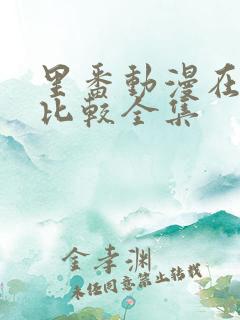 里番動漫在
比較全集
金孝渊
未经同意禁止转载